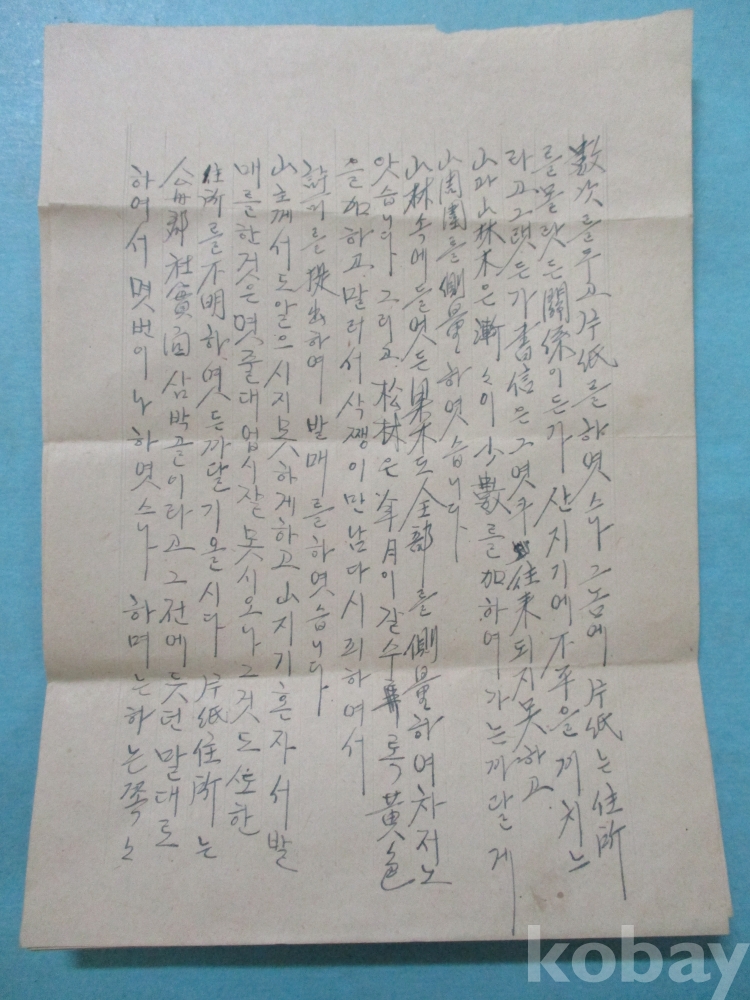 數次를두고 片紙를하엿스나 그놈에 片紙는 住所
를몰랏든 關係이든가 산지기에 不平을끼치느
라고그랫든가 書信은그엿주 往来되지못하고
山과 山林木은 漸々이 少數를加하여가는까닭게
山周圍를 側量하엿습니다
山林속에들엇든 果木도 全部를側量하여차저노
앗습니다 그리고 松林은 年月이갈수록 黃色
을加하고 말러서 삭쟁이만남다시피하여서
許可를提出하여 발매를하엿습니다
山主께서도알으시지못하게하고 山지기혼자서발
매를한것은 몃줄대업시잘못시오나 그것도 또한
住所를不明하엿든까달기올시다 片紙住所는
公州郡 社實面 삼박골이타고 그전에듯던말대로
하여서 몃번이나하엿스나 하며는하는쪽々
kobay